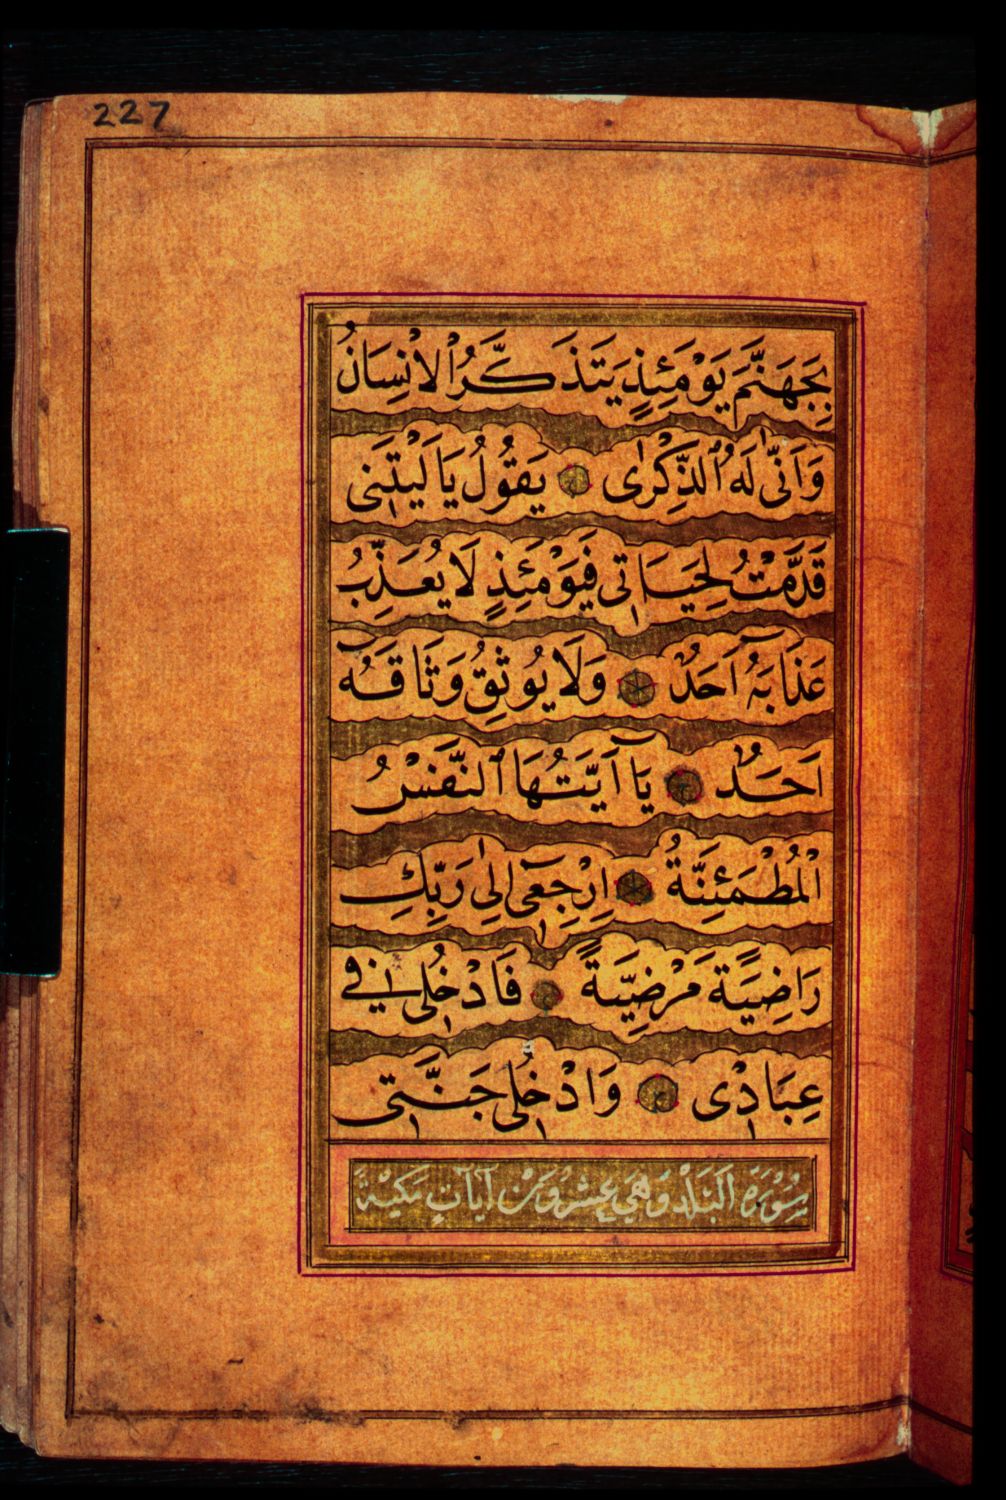 227
بِجَهَنَّمَ يَوْمَئِذٍ يَتَذَكَّرُ الْاِنْسَانُ
وَاَنّٰى لَهُ الذِّكْرٰى يَقُولُ يَا لَيْتَنِى
قَدَّمْتُ لِحَيَاتِى فَيَوْمَئِذٍ لَا يُعَذِّبُ
عَذَابَهُٓ اَحَدٌ وَلَا يُوثِقُ وَثَاقَهُٓ
اَحَدٌ يَٓا اَيَّتُهَا النَّفْسُ
الْمُطْمَئِنَّةُ اِرْجِعِٓى اِلٰى رَبِّكِ
رَاضِيَةً مَرْضِيَّةً فَادْخُلِى فِى
عِبَادِى وَادْخُلِى جَنَّتِى
سُورَةُ الْبَلَدْ وَهِيَ عِشْرُونَ آيَاتٍ مَكِيَّةْ